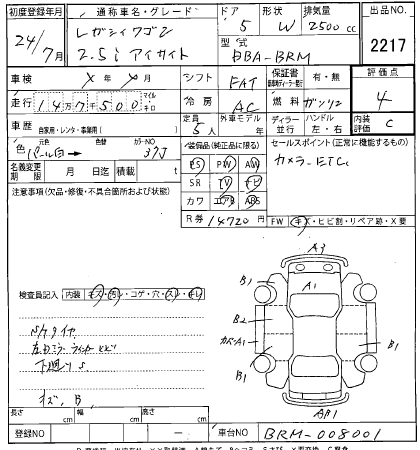 初度登録年月 通称車名・グレード ドア 形状 排気量 出品NO.
24/7月 レガシィワゴン 5 W 2500cc 2217
2.5i アイサイト 型式 DBA-BRM
車検 X年 X月 シフト FAT 保証書 有・無 評価点
走行 14万7千500 マイル キロ 冷房 AC 燃料 ガソリン 4
車歴 自家用・レンタ・事業用( ) 定員 5人 外車モデル 年 ディーラー 並行 ハンドル 左・右 内装評価 C
色 元色 パール白→ 色替 カラーNO 37J 装備品(純正品に限る) セールスポイント(正常に機能するもの)
PS PW AW カメラ-ETC
名義変更期限 月 日迄 積載 t SR TV ナビ
注意事項(欠品・修復・不具合箇所および状態) カワ エアB ABS
R券 14720円 FW キズ・ヒビ割・リペア跡・X要
A3
検査員記入 内装 キズ・汚レ・コゲ・穴・スレ・キレ B1 A1
S/Tタイヤ B2
左ドアミラーウィンカー カバーA1 B1
下廻りS B1
キズ、B AP1
長さ cm 幅 cm 高さ cm
登録NO 車台NO BRM-008001